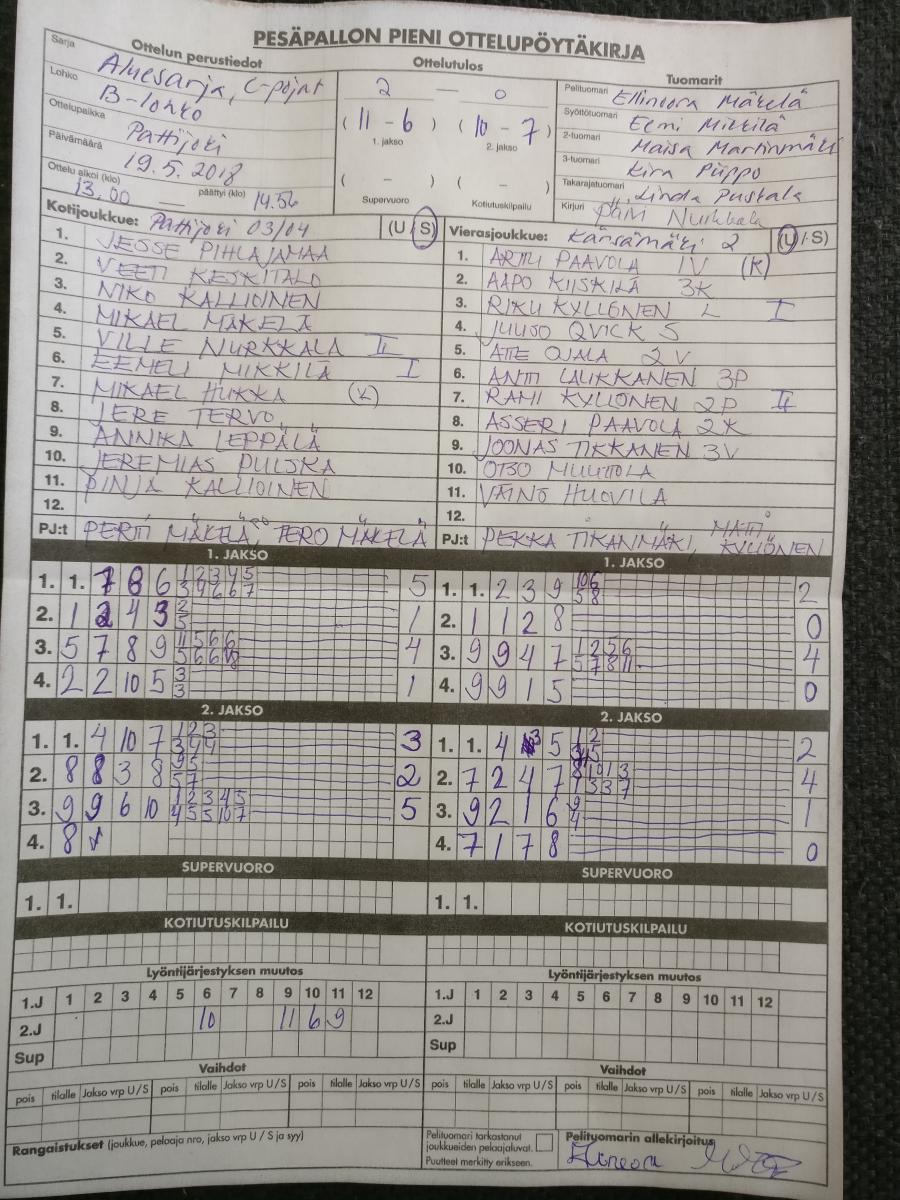 PESÄPALLON PIENI OTTELUPÖYTÄKIRJA
Ottelun perustiedot
Sarja Aluesarja, C-pojat
Lohko B-lohko
Ottelupaikka Pattijoki
Päivämäärä 19.5.2018
Ottelu alkoi (klo) 13.00 — päättyi (klo) 14.56
Ottelutulos
2 — 0
( 11 - 6 ) ( 10 - 7 )
1. jakso 2. jakso
( - ) ( - )
Supervuoro Kotiutuskilpailu
Tuomarit
Pelituomari Ellinoora Mäkelä
Syöttötuomari Eemi Mikkilä
2-tuomari Maisa Martinmäki
3-tuomari Kira Piippo
Takarajatuomari Linda Puskala
Kirjuri Päivi Nurkkala
Kotijoukkue: Pattijoki 03/04 (U / S)
1. JESSE PIHLAJAMAA
2. VEETI KESKITALO
3. NIKO KALLIOINEN
4. MIKAEL MÄKELÄ
5. VILLE NURKKALA II
6. EEMELI MIKKILÄ I
7. MIKAEL HUKKA (K)
8. JERE TERVO
9. ANNIKA LEPPÄLÄ
10. JEREMIAS PULSKA
11. PINJA KALLIOINEN
12.
PJ:t PERTTI MÄKELÄ, TERO MÄKELÄ
Vierasjoukkue: Kärsämäki 2 (U / S)
1. ARTTU PAAVOLA 1V (K)
2. AAPO KIISKILÄ 3K
3. RIKU KYLLÖNEN L I
4. JUUSO QVICK S
5. ATTE OJALA 2V
6. ANTTI LAUKKANEN 3P
7. RAMI KYLLÖNEN 2P II
8. ASSERI PAAVOLA 2K
9. JOONAS TIKKANEN 3V
10. OTSO MUUTTOLA
11. VÄINÖ HUOVILA
12.
PJ:t PEKKA TIKANMÄKI, MATTI KYLLÖNEN
1. JAKSO
1. 1. 7 8 6 1 2 3 4 5 5
3 4 6 6 7
2. 1 2 4 3 2 1
5
3. 5 7 8 9 11 5 6 6 4
4. 2 2 10 5 3 1
3
1. JAKSO
1. 1. 2 3 9 10 6 2
5 8
2. 1 1 2 8 0
3. 9 9 4 7 1 2 5 6 4
5 7 8 11
4. 9 9 1 5 0
2. JAKSO
1. 1. 4 10 7 1 2 3 3
3 4 4
2. 8 8 3 8 9 5 2
5 7
3. 9 9 6 10 1 2 3 4 5 5
4 5 5 10 7
4. 8
2. JAKSO
1. 1. 4 3 5 1 2 2
2. 7 2 4 7 8 10 1 3 4
1 3 3 7
3. 9 2 1 6 9 1
4
4. 7 1 7 8 0
SUPERVUORO
1. 1.
SUPERVUORO
1. 1.
KOTIUTUSKILPAILU
KOTIUTUSKILPAILU
Lyöntijärjestyksen muutos
1.J 1 2 3 4 5 6 7 8 9 10 11 12
2.J 10 11 6 9
Sup
Lyöntijärjestyksen muutos
1.J 1 2 3 4 5 6 7 8 9 10 11 12
2.J
Sup
Vaihdot
pois tilalle Jakso vrp U/S pois tilalle Jakso vrp U/S pois tilalle Jakso vrp U/S
Vaihdot
pois tilalle Jakso vrp U/S pois tilalle Jakso vrp U/S pois tilalle Jakso vrp U/S
Rangaistukset (joukkue, pelaaja nro, jakso vrp U / S ja syy)
Pelituomari tarkastanut
joukkueiden pelaajaluvat.
Puutteet merkitty erikseen.
Pelituomarin allekirjoitus